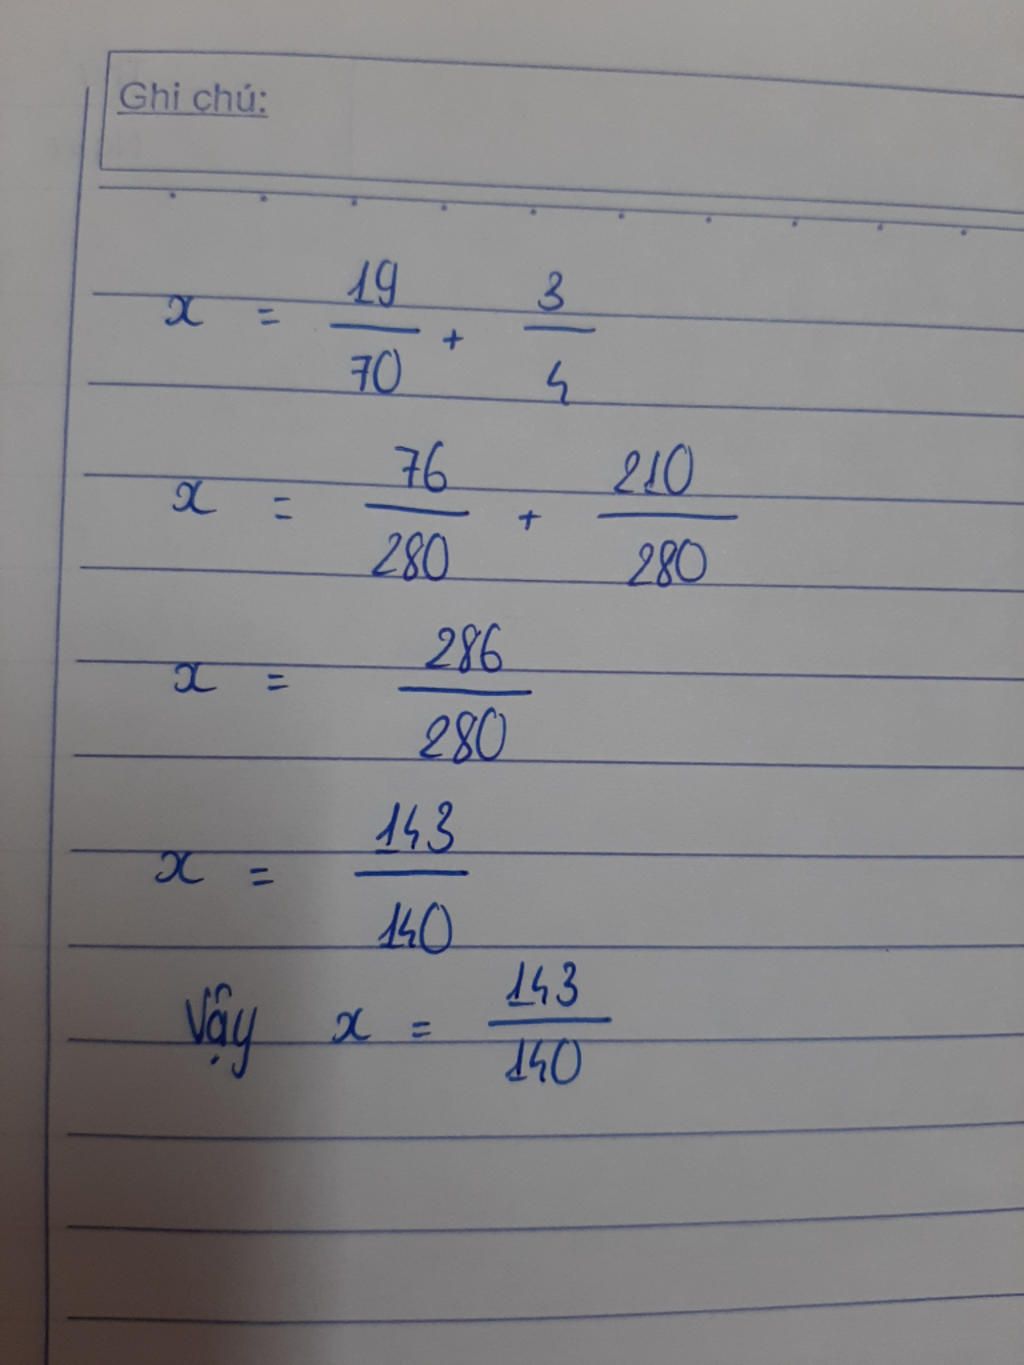 Ghi chú:
x = 19/70 + 3/4
x = 76/280 + 210/280
x = 286/280
x = 143/140
Vậy x = 143/140